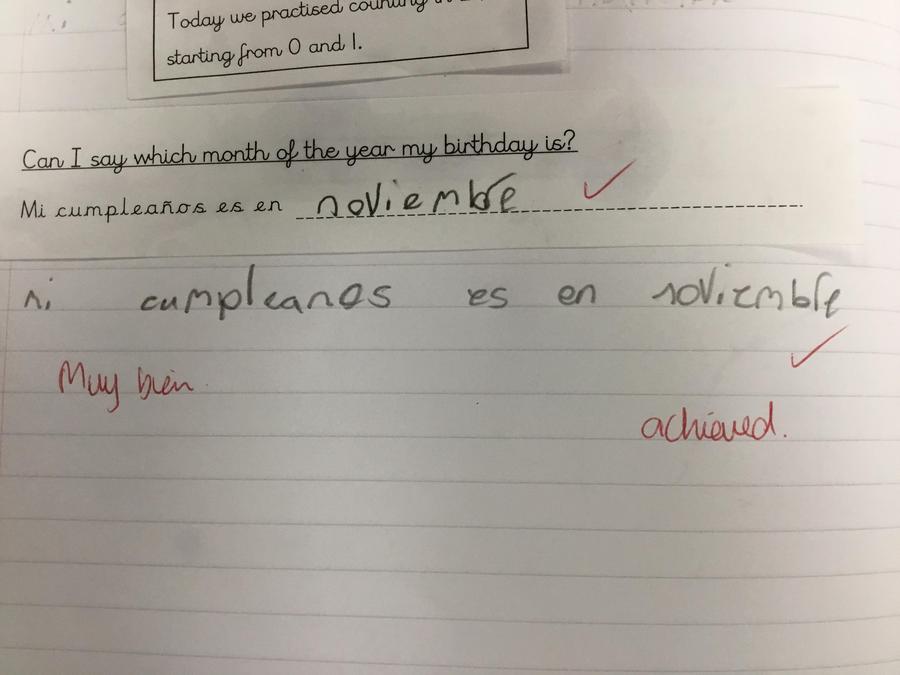 Today we practised counting in
starting from 0 and 1.
Can I say which month of the year my birthday is?
Mi cumpleaños es en noviembre
ni cumpleanos es en noviembre
Muy bien
achieved.